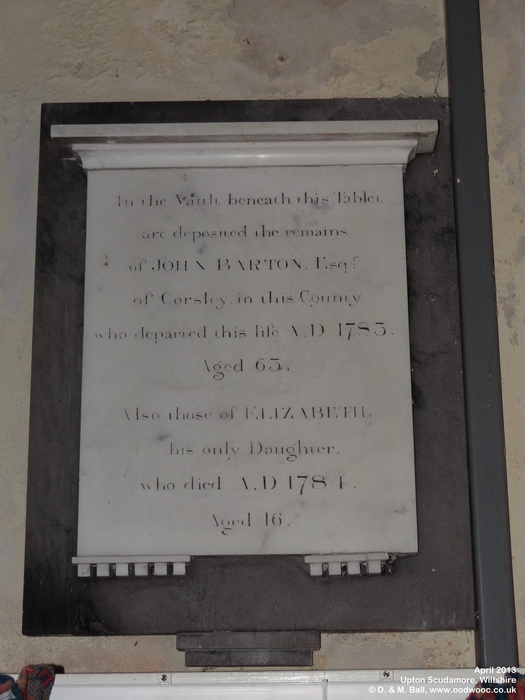 In the Vault beneath this Tablet
are deposited the remains
of JOHN BARTON, Esqr.
of Corsley, in this County
who departed this life A.D 1783.
Aged 63.
Also those of ELIZABETH,
his only Daughter,
who died A.D 1784.
Aged 16.
April 2013
Upton Scudamore, Wiltshire
© D. & M. Ball, www.oodwooc.co.uk